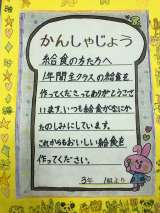 かんしゃじょう
給食の方たちへ
1年間全クラスの給食を
作ってくださってありがとうござ
います。いつも給食がなにか
たのしみにしています。
これからもおいしい給食を
作ってください。
3年 1組より